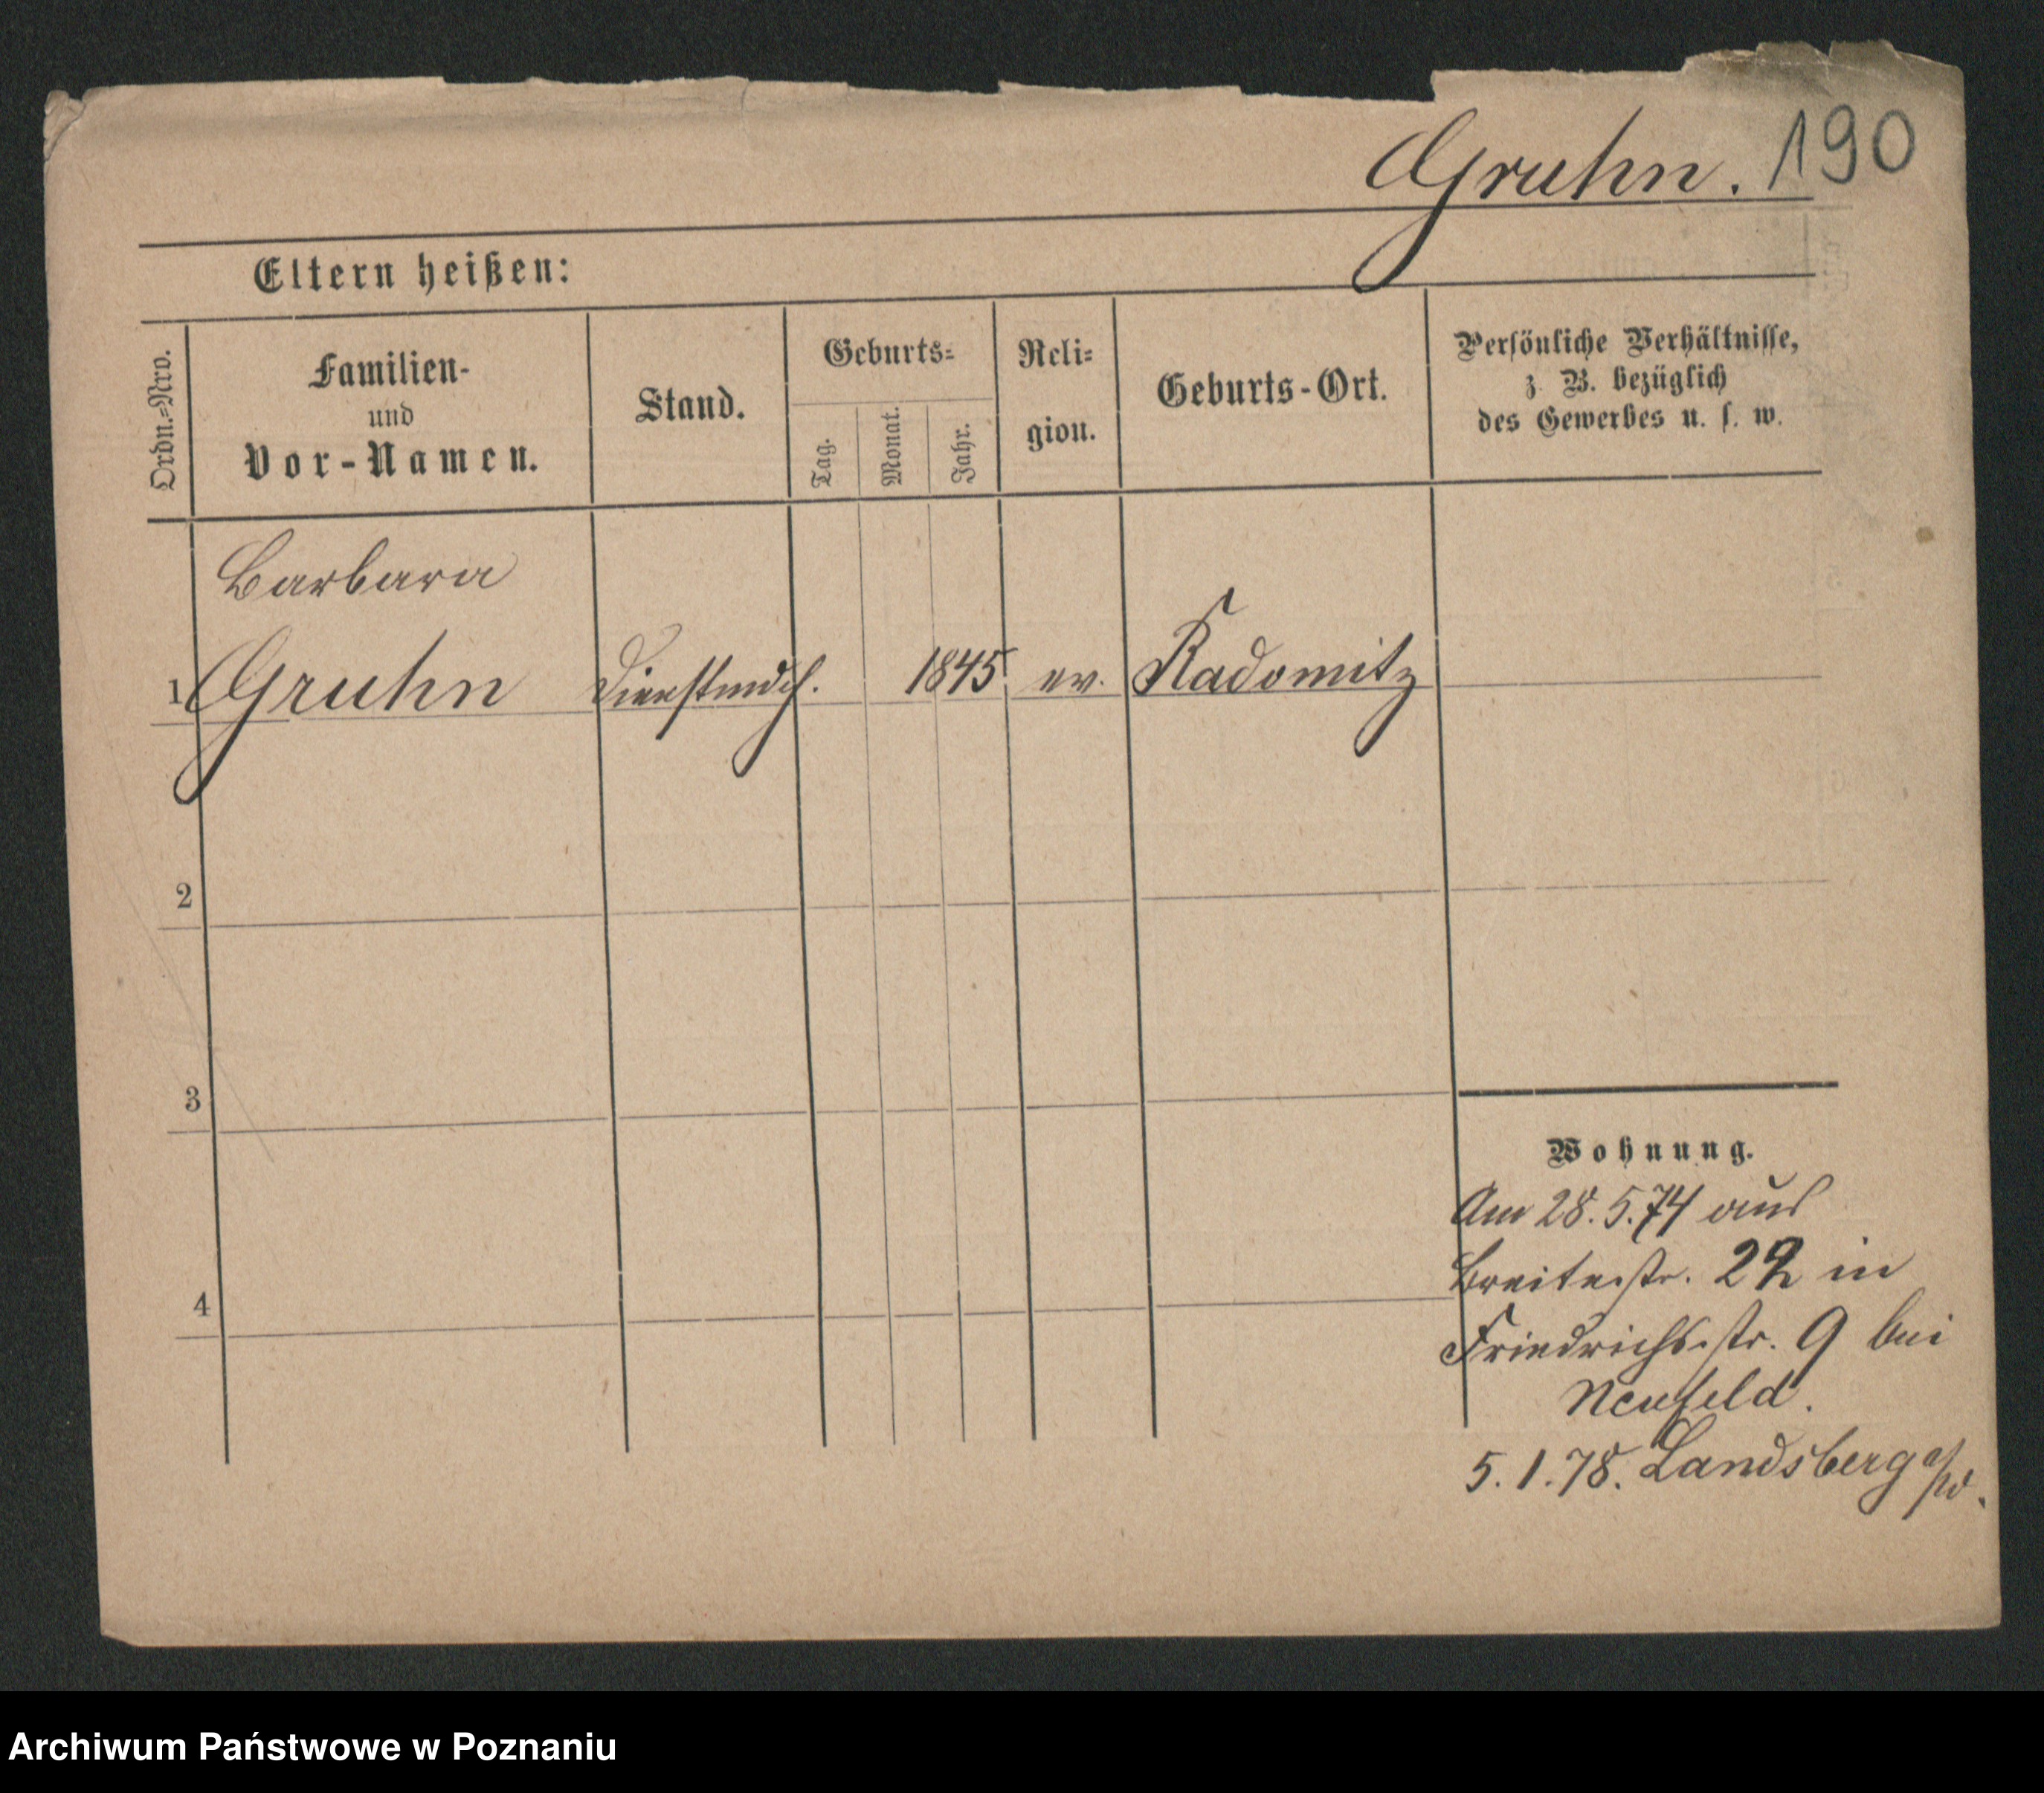 Gruhn. 190
Eltern heißen:
Ordn.=Nro.
Familien-
und
Vor-Namen.
Stand.
Geburts=
Tag.
Monat.
Jahr.
Reli=
gion.
Geburts-Ort.
Persönliche Verhältnisse,
z. B. bezüglich
des Gewerbes u. s. w.
Barbara
1 Gruhn Dienstmdch. 1845 ev. Radomitz
2
3
4
Wohnung.
Am 28. 5. 74 aus
Breitestr. 22 in
Friedrichsstr. 9 bei
Neufeld.
5. 1. 78. Landsberg a/W.
Archiwum Państwowe w Poznaniu